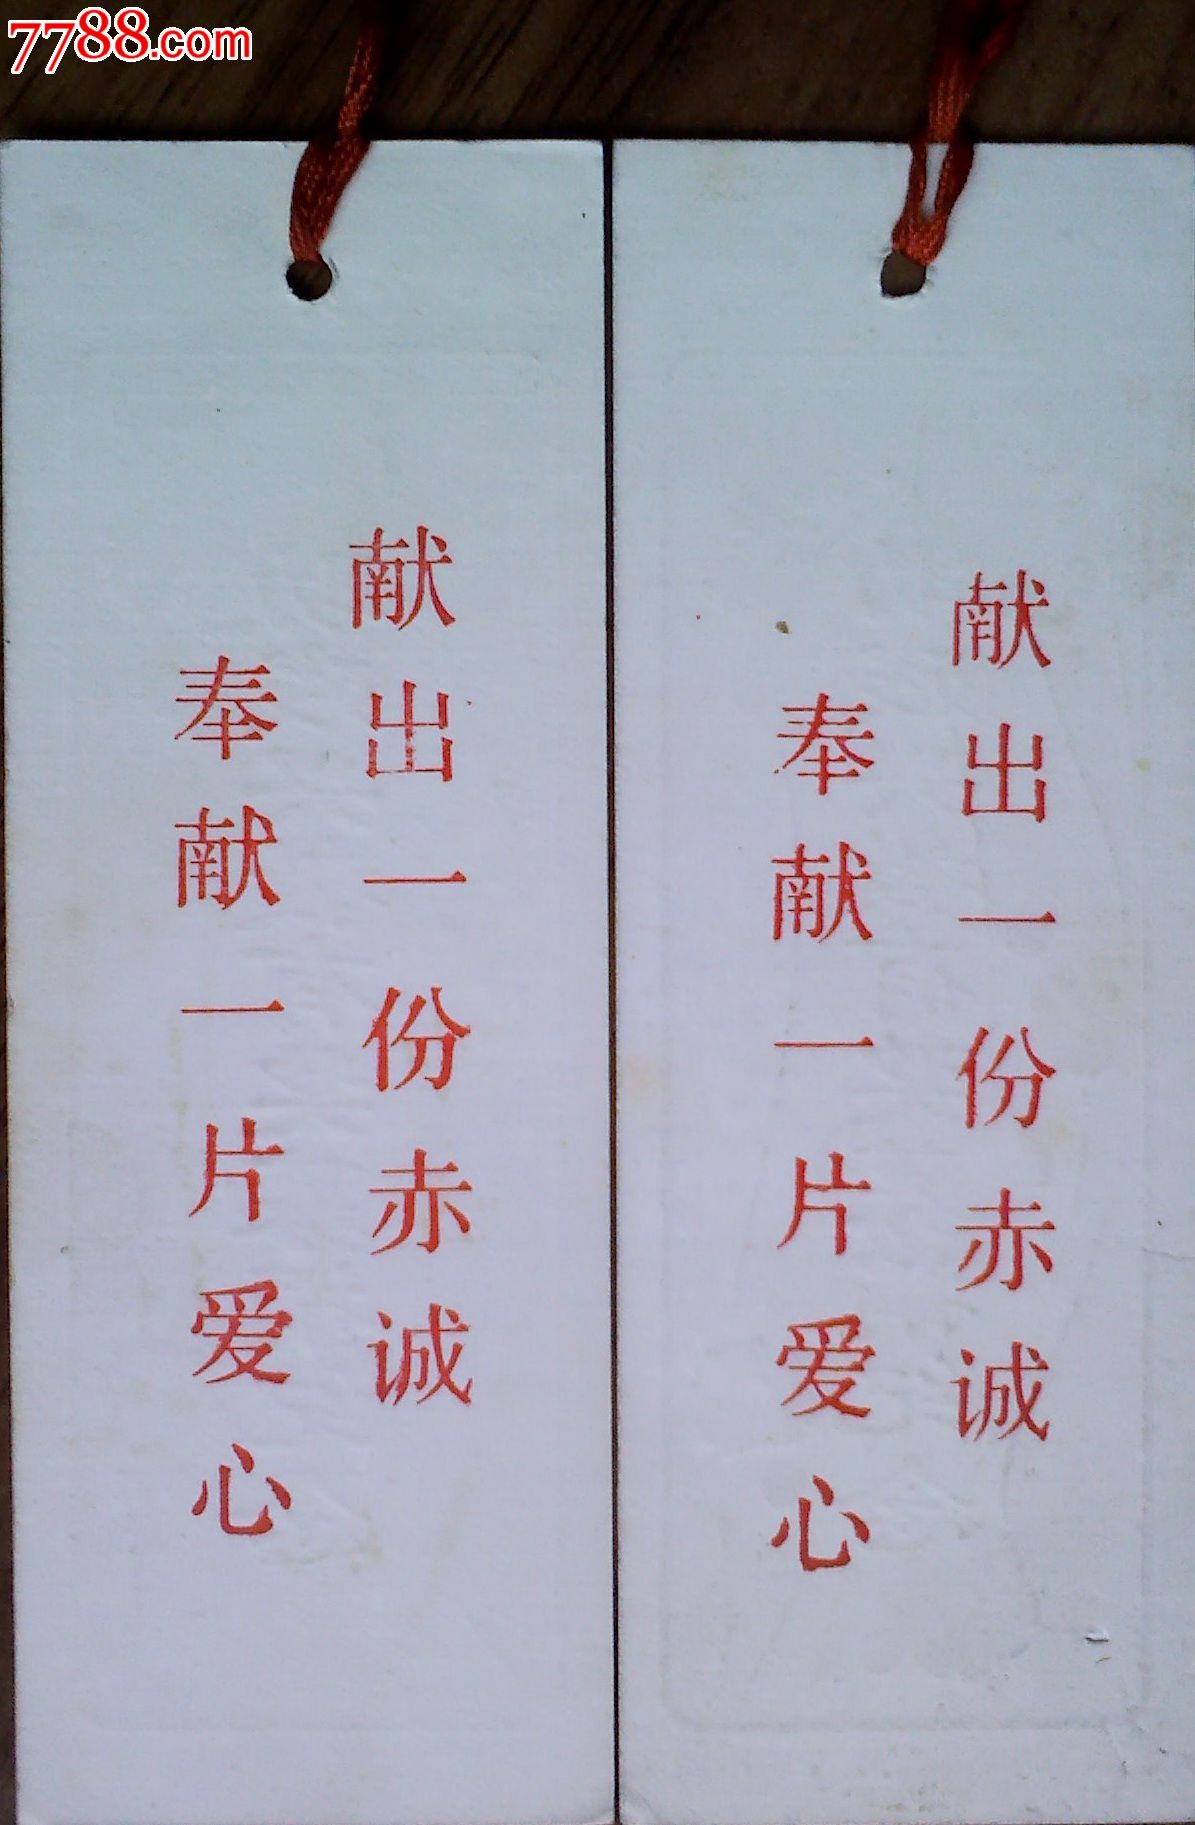 7788.com
献出一份赤诚
奉献一片爱心
献出一份赤诚
奉献一片爱心